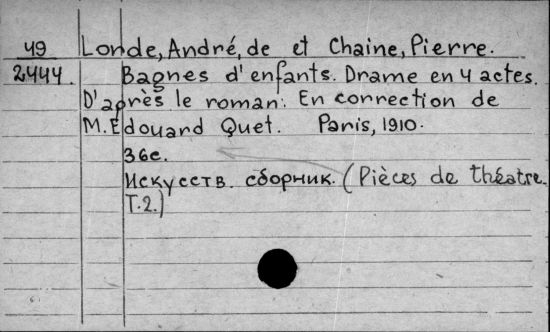 49 Londe, André, de et Chaine, Pierre.
2444. Bagnes d'enfants. Drame en 4 actes.
D'après le roman: En correction de
M. Edouard Quet. Paris, 1910.
36c.
Искусств. сборник. (Pièces de théatre.
T.2.)